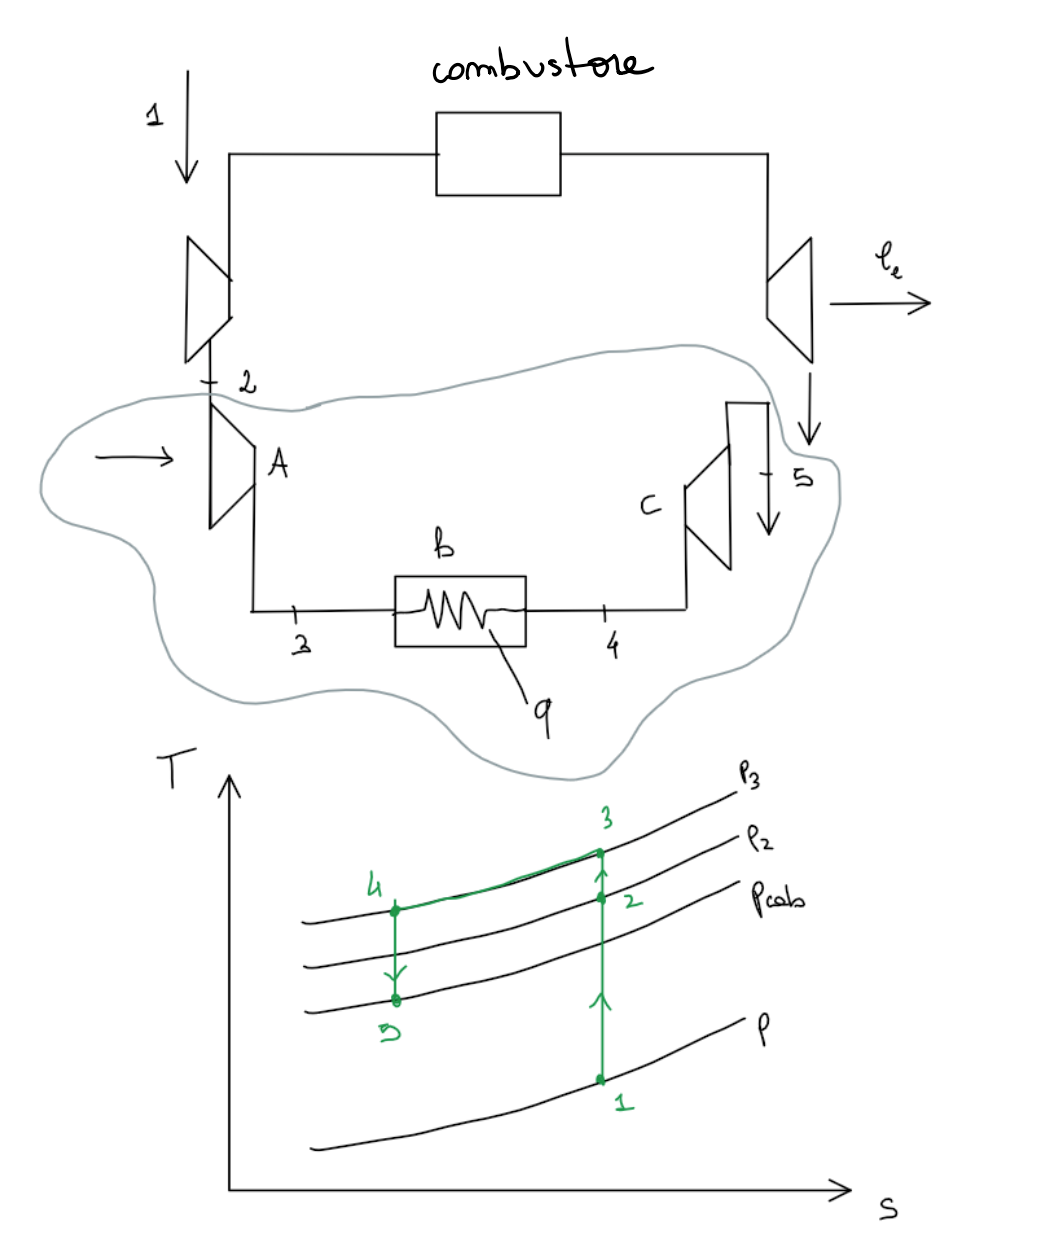 combustore
1
le
2
A
5
C
b
3
4
q
T
P3
3
P2
4
2
Pcab
5
P
1
S